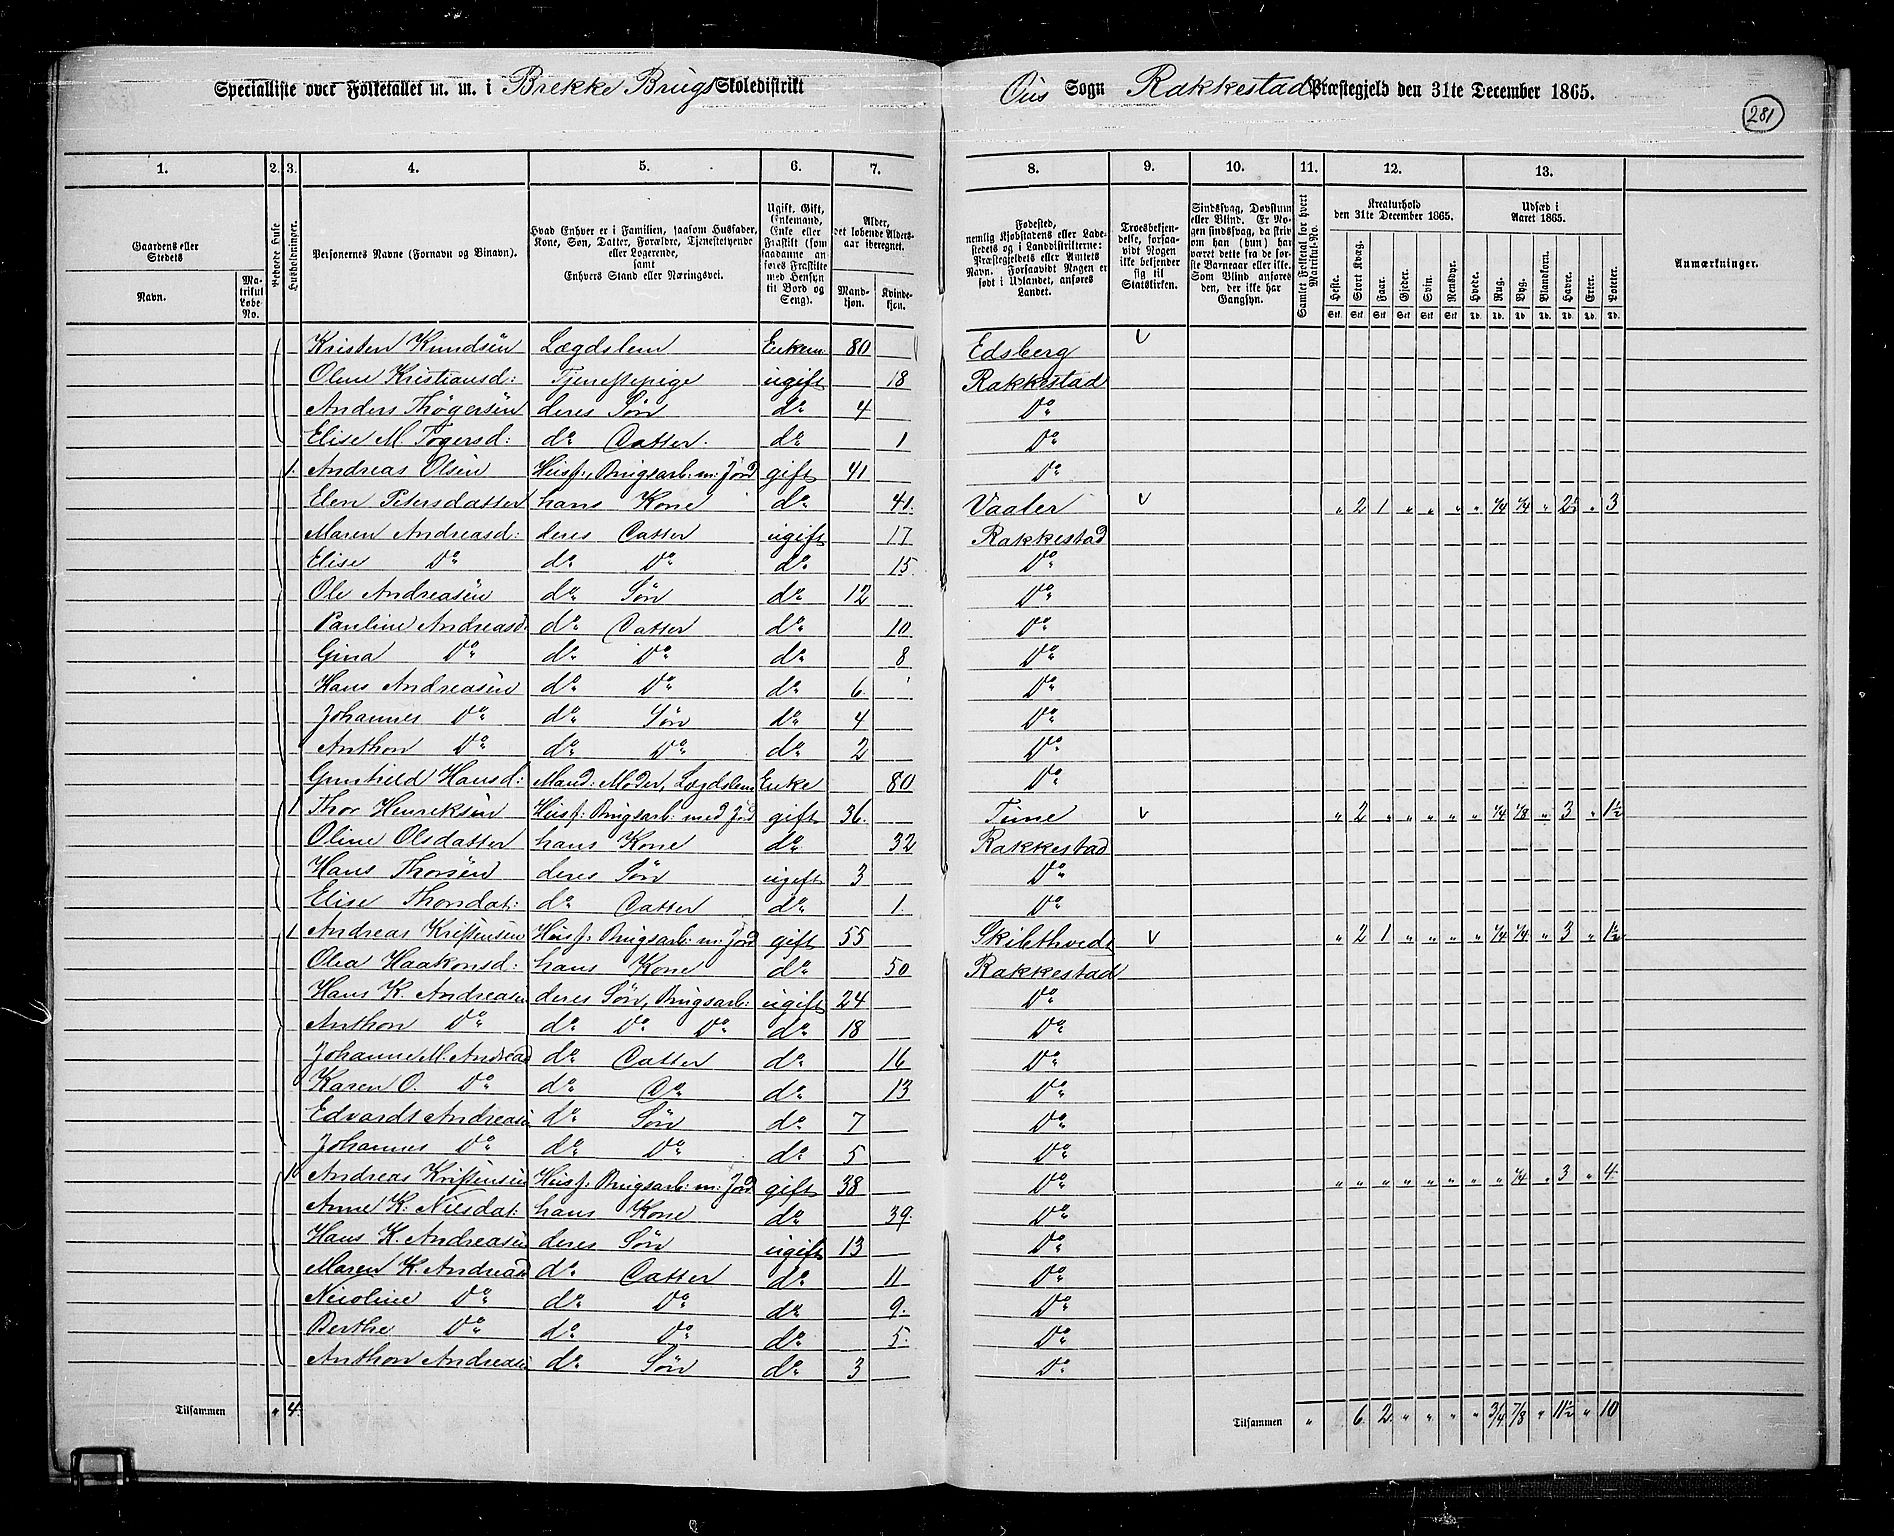 Specialliste over Folketallet m. m. i Brekke Brugs Skoledistrikt Ous Sogn Rakkestads Præstegjeld den 31te December 1865.
281
1. 2. 3. 4. 5. 6. 7. 8. 9. 10. 11. 12. 13.
Gaardens eller Stedets
Navn.
Matrikul Løbe-No.
Beboede Huse
Husholdninger.
Personernes Navne (Fornavn og Binavn).
Hvad Enhver er i Familien, saasom Husfader, Kone, Søn, Datter, Forældre, Tjenestetyende eller Logerende, samt Enhvers Stand eller Næringsvei.
Ugift, Gift, Enkemand, Enke eller Fraskilt (som saadanne anføres Fraskilte med Hensyn til Bord og Seng).
Alder, det løbende Alders-aar iberegnet.
Mandkjøn. Kvindekjøn.
Fødested, nemlig Kjøbstadens eller Ladestedets og i Landdistrikterne: Præstegjeldets eller Amtets Navn. Forsaavidt Nogen er født i Udlandet, anføres Landet.
Troesbekjendelse, forsaavidt Nogen ikke bekjender sig til Statskirken.
Sindssvag, Døvstum eller Blind. Er Nogen sindssvag, da skrives om han (hun) har været dette fra de første Barneaar eller ikke. Som Blind anføres den, der ikke har Gangsyn.
Samlet Folketal for hvert Matrikul-No.
Kreaturhold den 31te December 1865.
Heste. Stort Kvæg. Faar. Gjeder. Svin. Rensdyr.
Udsæd i Aaret 1865.
Hvede. Rug. Byg. Blandkorn. Havre. Erter. Poteter.
Stk. Stk. Stk. Stk. Stk. Stk. Td. Td. Td. Td. Td. Td. Td.
Anmærkninger.
Kristen Knudsen Lægdslem Enkem. 80 Edsberg v
Oline Kristiansd: Tjenestepige ugift 18 Rakkestad
Anders Thøgersen deres Søn do 4 Do
Elise M. Tøgersd: do Datter. do 1 Do
1. Andreas Olsen Husf., Brugsarb: m: Jord gift 41 Do
Elen Petersdatter hans Kone do 41. Vaaler v " 2 1 " " " " 1/4 1/4 " 2½ " 3
Maren Andreasd: deres Datter ugift 17 Rakkestad
Elise Do do Do do 15. Do
Ole Andreasen do Søn do 12 Do
Pauline Andreasd. do Datter do 10 Do
Gina Do do Do do 8 Do
Hans Andreasen do Do do 6. Do
Johannes Do do Søn do 4 Do
Anthon Do do Do do 2 Do
Gunhild Hansd: Mand: Moder, Lægdslem Enke 80 Do
1 Thor Henriksen Husf: Brugsarb: med Jord gift 36. Tune v " 2 " " " " " 1/4 1/8 " 3 " 1½
Oline Olsdatter hans Kone do 32 Rakkestad
Hans Thorsen deres Søn ugift 3 Do
Elise Thorsdat: do Datter do 1. Do
1 Andreas Kristensen Husf: Brugsarb: m: Jord gift 55 Skibthvedt v " 2 1 " " " " 1/4 1/4 " 3 " 1½
Olea Haakonsd: hans Kone do 50 Rakkestad
Hans K. Andreasen deres Søn, Brugsarb: ugift 24 Do
Anthon Do do Do Do do 18 Do
Johanne M. Andread do Datter do 16 Do
Karen O. Do do Do do 13 Do
Edvardt Andreasen do Søn do 7 Do
Johannes Do do Do do 5 Do
1 Andreas Kristensen Husf: Brugsarb: m: Jord gift 38 Do " " " " " " " " 1/4 " 3 " 4
Anne K. Nilsdat: hans Kone do 39. Do
Hans K. Andreasen deres Søn ugift 13 Do
Maren K. Andreasd do Datter do 11 Do
Nicoline Do do Do do 9. Do
Berthe Do do Do do 5. Do
Anthon Andreasen do Søn do 3 Do
Tilsammen " 4. Tilsammen " 6. 2 " " " " 3/4 7/8 " 11½ " 10